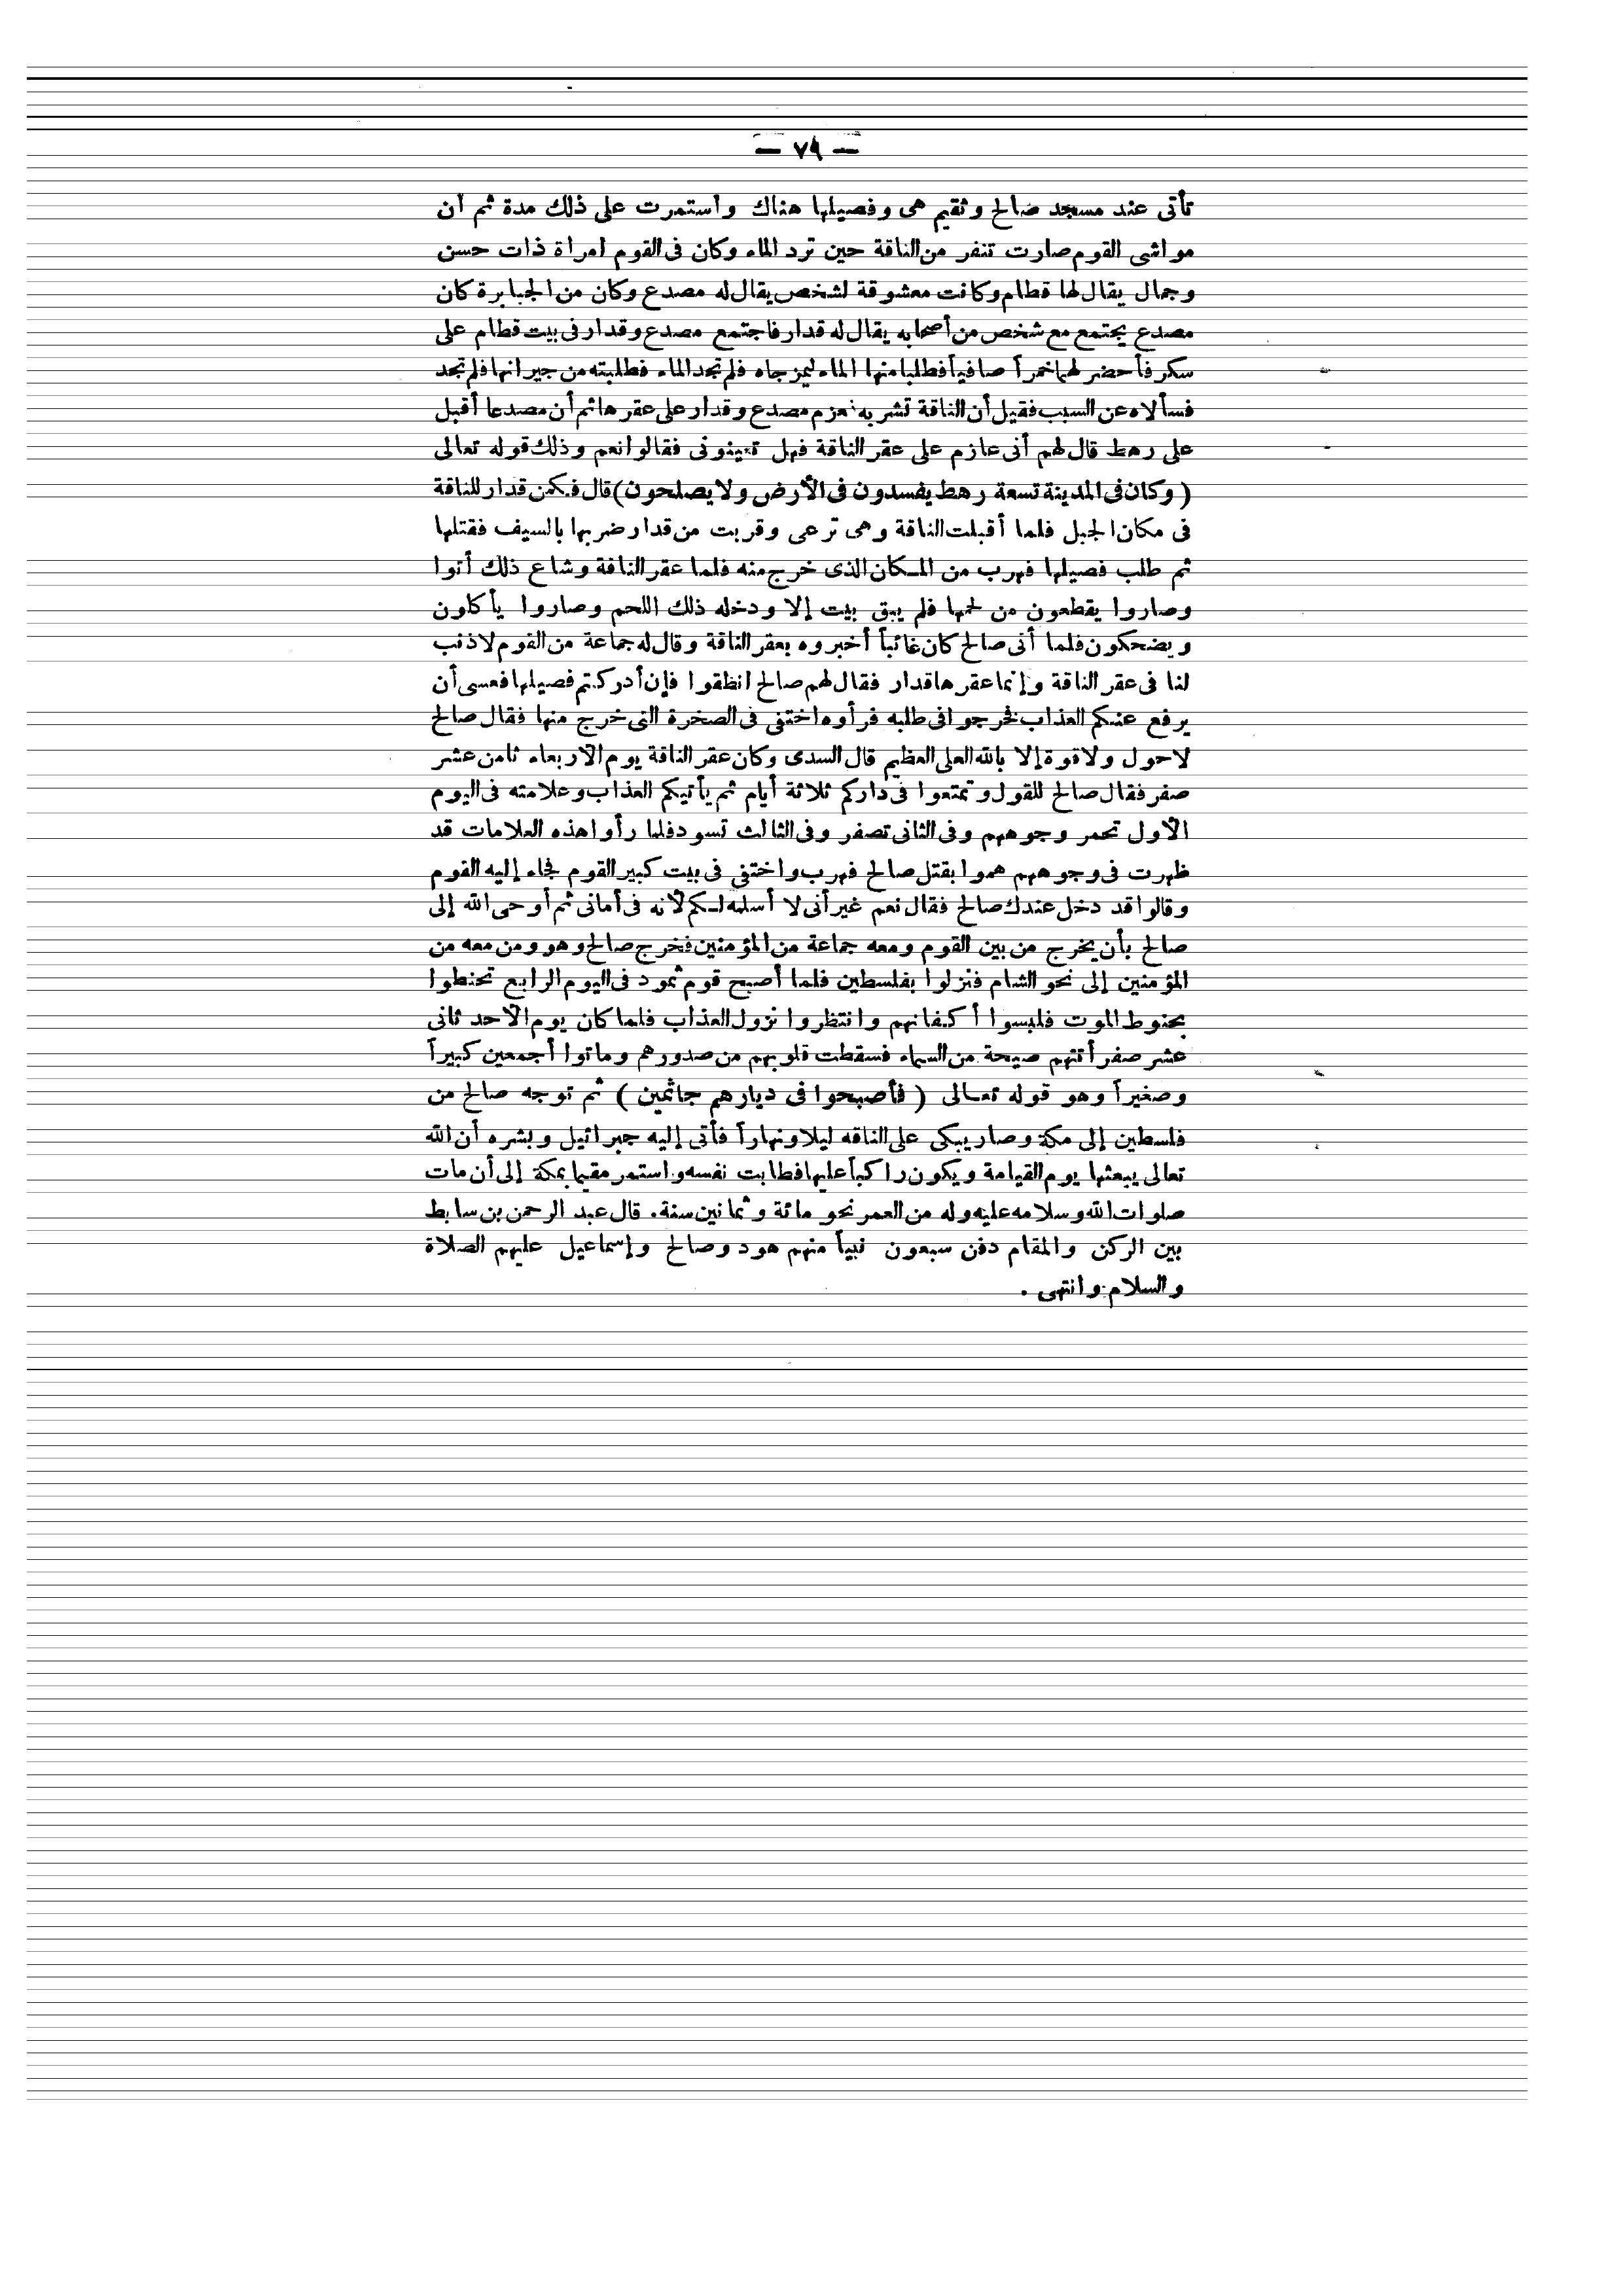 — ٧٩ —
تأتى عند مسجد صالح وتقيم هى وفصيلها هناك واستمرت على ذلك مدة ثم أن
مواشى القوم صارت تنفر من الناقة حين ترد الماء وكان فى القوم امرأة ذات حسن
وجمال يقال لها قطام وكانت معشوقة لشخص يقال له مصدع وكان من الجبابرة كان
مصدع يجتمع مع شخص من أصحابه يقال له قدار فاجتمع مصدع وقدار فى بيت قطام على
سكر فأحضر لهما خمراً صافياً فطلبا منها الماء ليمزجاه فلم تجد الماء فطلبته من جيرانها فلم تجد
فسألاه عن السبب فقيل أن الناقة تشربه فعزم مصدع وقدار على عقرها ثم أن مصدعا أقبل
على رهط قال لهم أنى عازم على عقر الناقة فهل تعينونى فقالوا نعم وذلك قوله تعالى
( وكان فى المدينة تسعة رهط يفسدون فى الأرض ولا يصلحون ) قال فكمن قدار للناقة
فى مكان الجبل فلما أقبلت الناقة وهى ترعى وقربت من قدار ضربها بالسيف فقتلها
ثم طلب فصيلها فهرب من المكان الذى خرج منه فلما عقر الناقة وشاع ذلك أتوا
وصاروا يقطعون من لحمها فلم يبق بيت إلا ودخله ذلك اللحم وصاروا يأكلون
ويضحكون فلما أتى صالح كان غائباً أخبروه بعقر الناقة وقال له جماعة من القوم لا ذنب
لنا فى عقر الناقة وإنما عقرها قدار فقال لهم صالح انظقوا فإن أدركتم فصيلها فعسى أن
يرفع عنكم العذاب فخرجوا فى طلبه فرأوه اختفى فى الصخرة التى خرج منها فقال صالح
لا حول ولا قوة إلا بالله العلى العظيم قال السدى وكان عقر الناقة يوم الأربعاء ثامن عشر
صفر فقال صالح للقول وتمتعوا فى داركم ثلاثة أيام ثم يأتيكم العذاب وعلامته فى اليوم
الأول تحمر وجوههم وفى الثانى تصفر وفى الثالث تسود فلما رأوا هذه العلامات قد
ظهرت فى وجوههم هموا بقتل صالح فهرب واختفى فى بيت كبير القوم فجاء إليه القوم
وقالوا قد دخل عندك صالح فقال نعم غير أنى لا أسلمه لكم لأنه فى أمانى ثم أوحى الله إلى
صالح بأن يخرج من بين القوم ومعه جماعة من المؤمنين فخرج صالح وهو ومن معه من
المؤمنين إلى نحو الشام فنزلوا بفلسطين فلما أصبح قوم ثمود فى اليوم الرابع تحنطوا
بحنوط الموت فلبسوا أكفانهم وانتظروا نزول العذاب فلما كان يوم الأحد ثانى
عشر صفر أتتهم صيحة من السماء فسقطت قلوبهم من صدورهم وماتوا أجمعين كبيراً
وصغيراً وهو قوله تعالى ( فأصبحوا فى ديارهم جاثمين ) ثم توجه صالح من
فلسطين إلى مكة وصار يبكى على الناقه ليلا ونهاراً فأتى إليه جبرائيل وبشره أن الله
تعالى يبعثها يوم القيامة ويكون راكباً عليها فطابت نفسه واستمر مقيما بمكة إلى أن مات
صلوات الله وسلامه عليه وله من العمر نحو مائة وثمانين سنة. قال عبد الرحمن بن سابط
بين الركن والمقام دفن سبعون نبياً منهم هود وصالح وإسماعيل عليهم الصلاة
والسلام وانتهى .